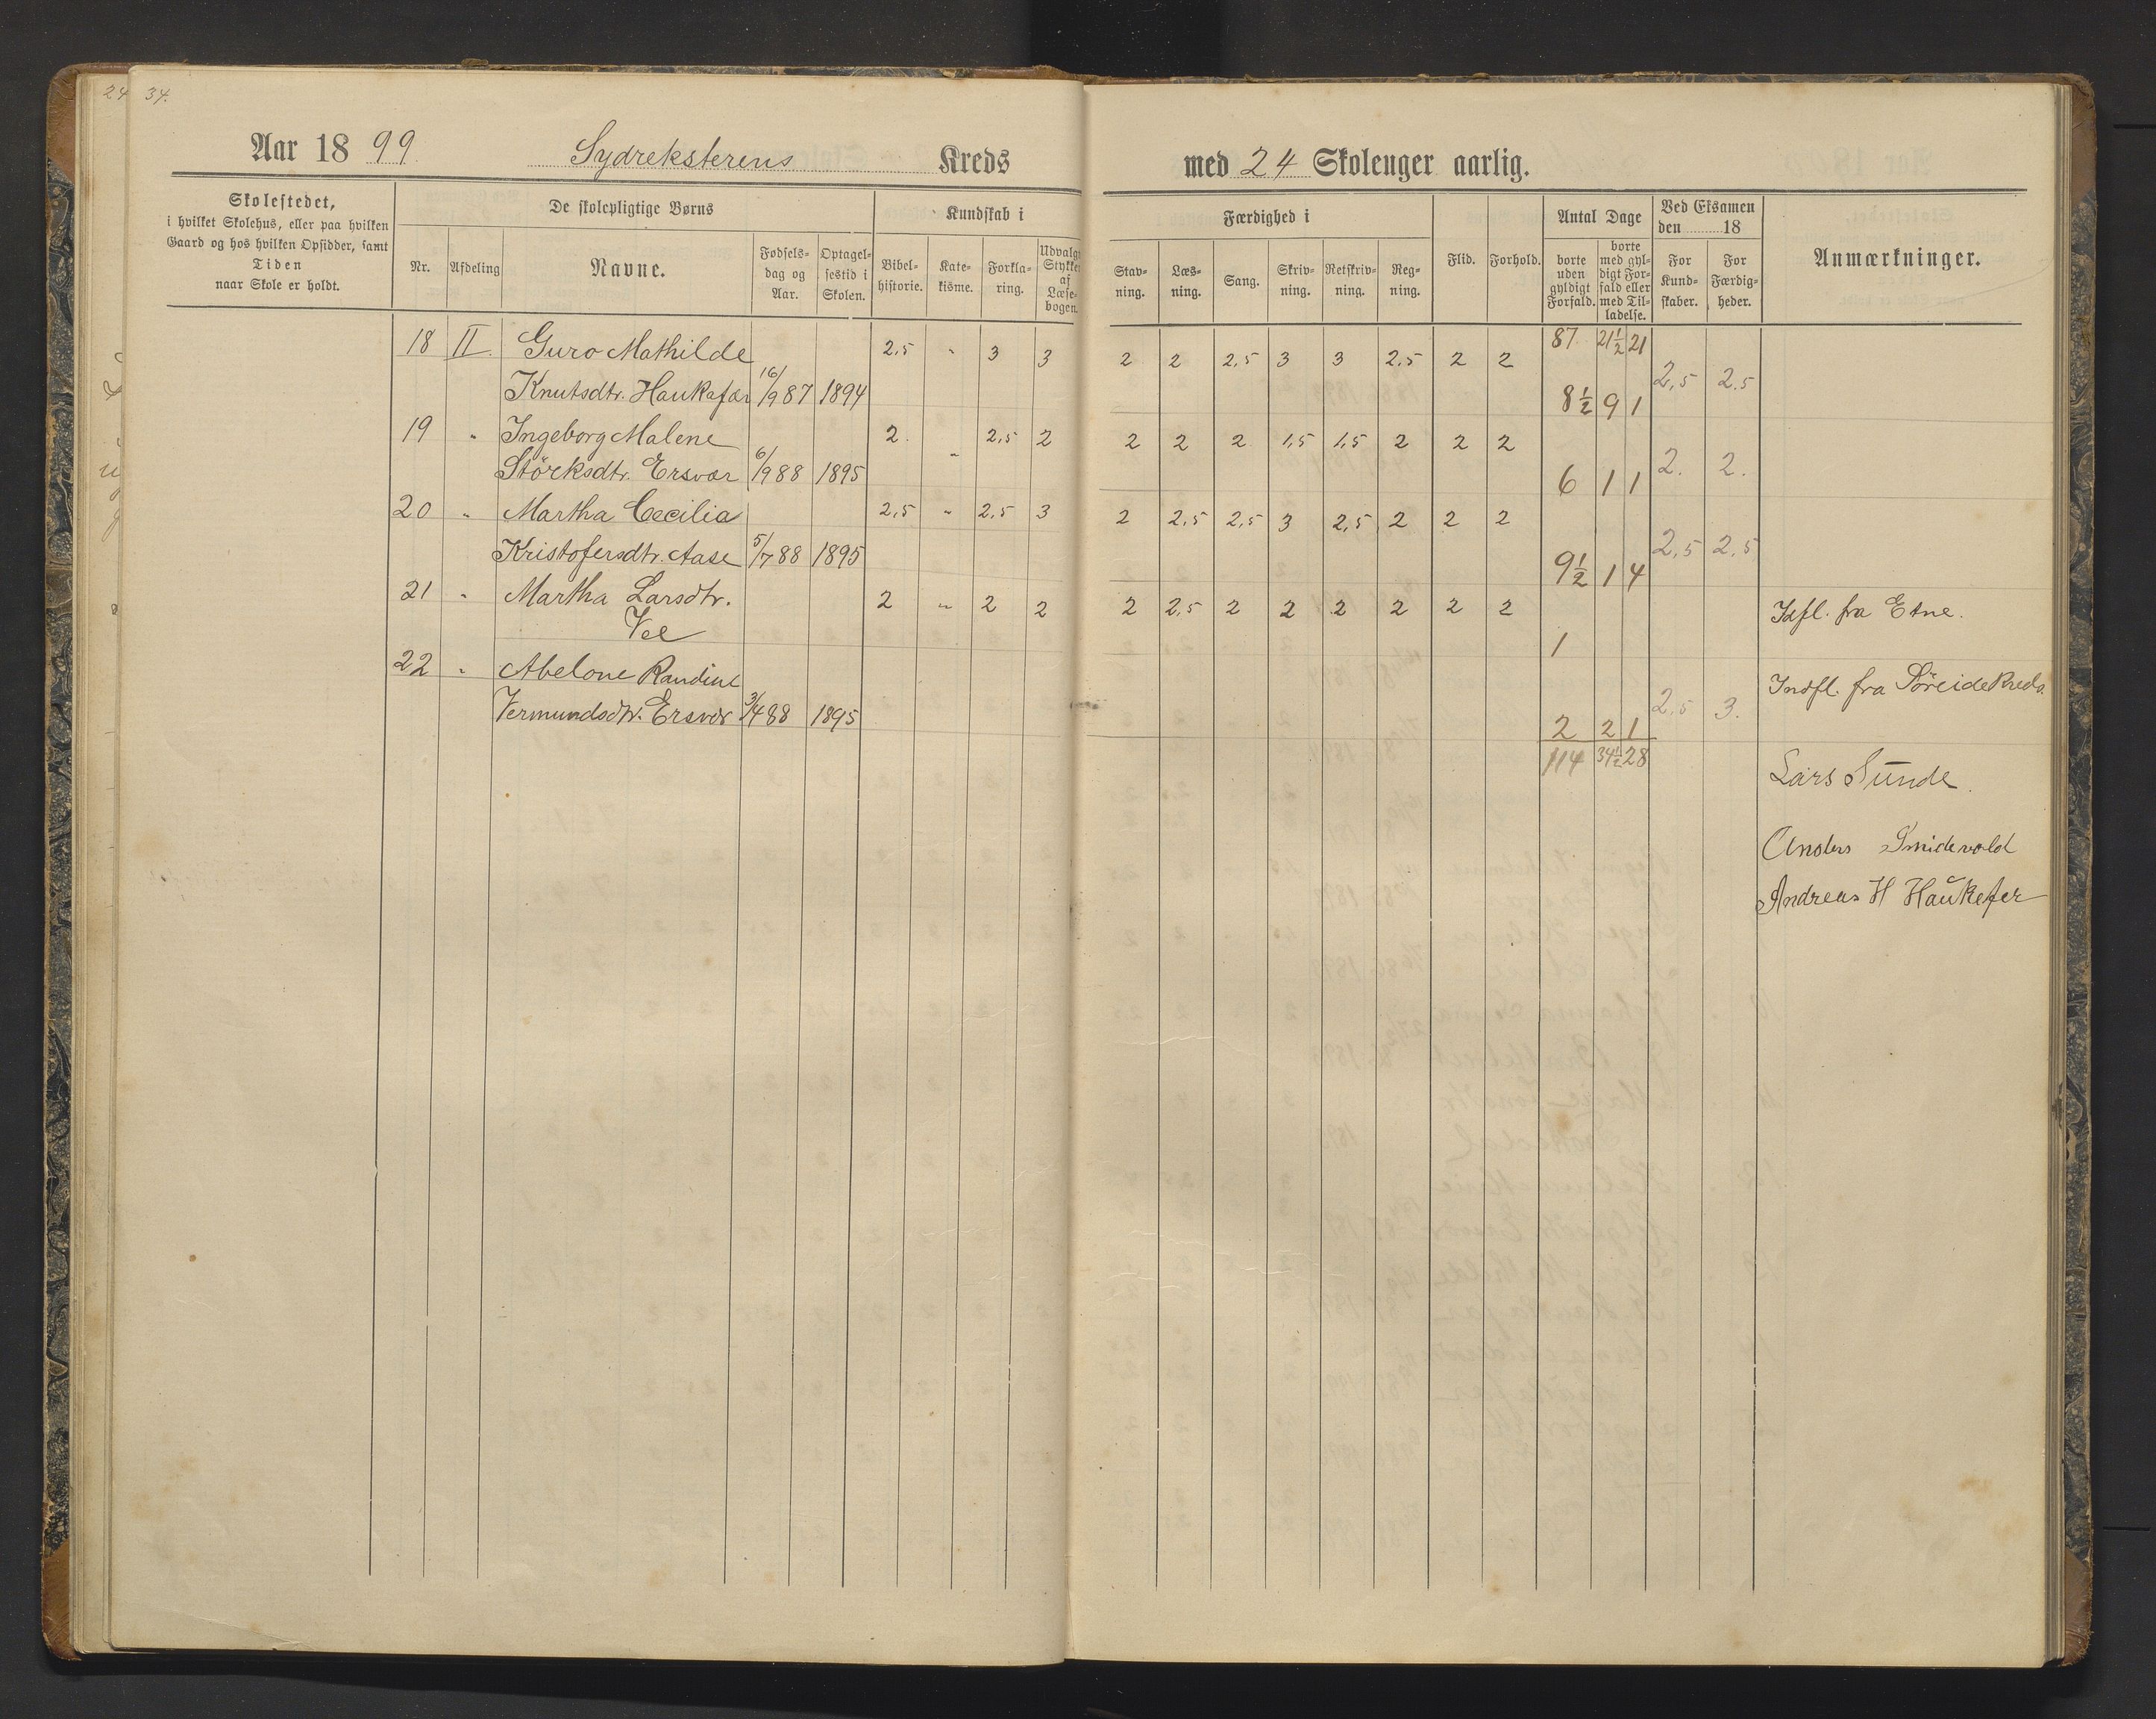 24 34.
Aar 1899 Sydreksterens Kreds med 24 Skoleuger aarlig.
Skolestedet,
i hvilket Skolehus, eller paa hvilken
Gaard og hos hvilken Opsidder, samt
Tiden
naar Skole er holdt.
De skolepligtige Børns
Nr. Afdeling Navne. Fødsels-
dag og
Aar. Optagel-
sestid i
Skolen.
Kundskab i
Bibel-
historie. Kate-
kisme. Forkla-
ring. Udvalgte
Stykker
af
Læse-
bogen.
Færdighed i
Stav-
ning. Læs-
ning. Sang. Skriv-
ning. Retskriv-
ning. Reg-
ning.
Flid. Forhold.
Antal Dage
borte
uden
gyldigt
Forfald. borte
med gyl-
digt For-
fald eller
med Til-
ladelse.
Ved Eksamen
den 18
For
Kund-
skaber. For
Færdig-
heder.
Anmærkninger.
87 21½ 21
18 II. Guro Mathilde 2,5 " 3 3 2 2 2,5 3 3 2,5 2 2
Knutsdtr. Haukafær 16/9 87 1894 8½ 9 1 2,5 2.5
19 " Ingeborg Malene 2. " 2,5 2 2 2 2 1,5 1,5 2 2 2
Störksdtr. Ersvær 6/9 88 1895 6 1 1 2. 2.
20 " Martha Cecilia 2,5 " 2,5 3 2 2,5 2,5 3 2,5 2 2 2
Kristofersdtr. Aase 5/7 88 1895 9½ 1 4 2,5 2,5
21 " Martha Larsdtr. 2 " 2 2 2 2,5 2 2 2 2 2 2 Idfl. fra Etne.
Vee 1
22 " Abelone Randine Indfl. fra Söreide Kreds.
Vermundsdtr. Ersvær 3/4 88 1895 2 2 1 2.5 3.
114 34½ 28
Lars Sunde.
Anders Smidevold
Andreas H Haukefer